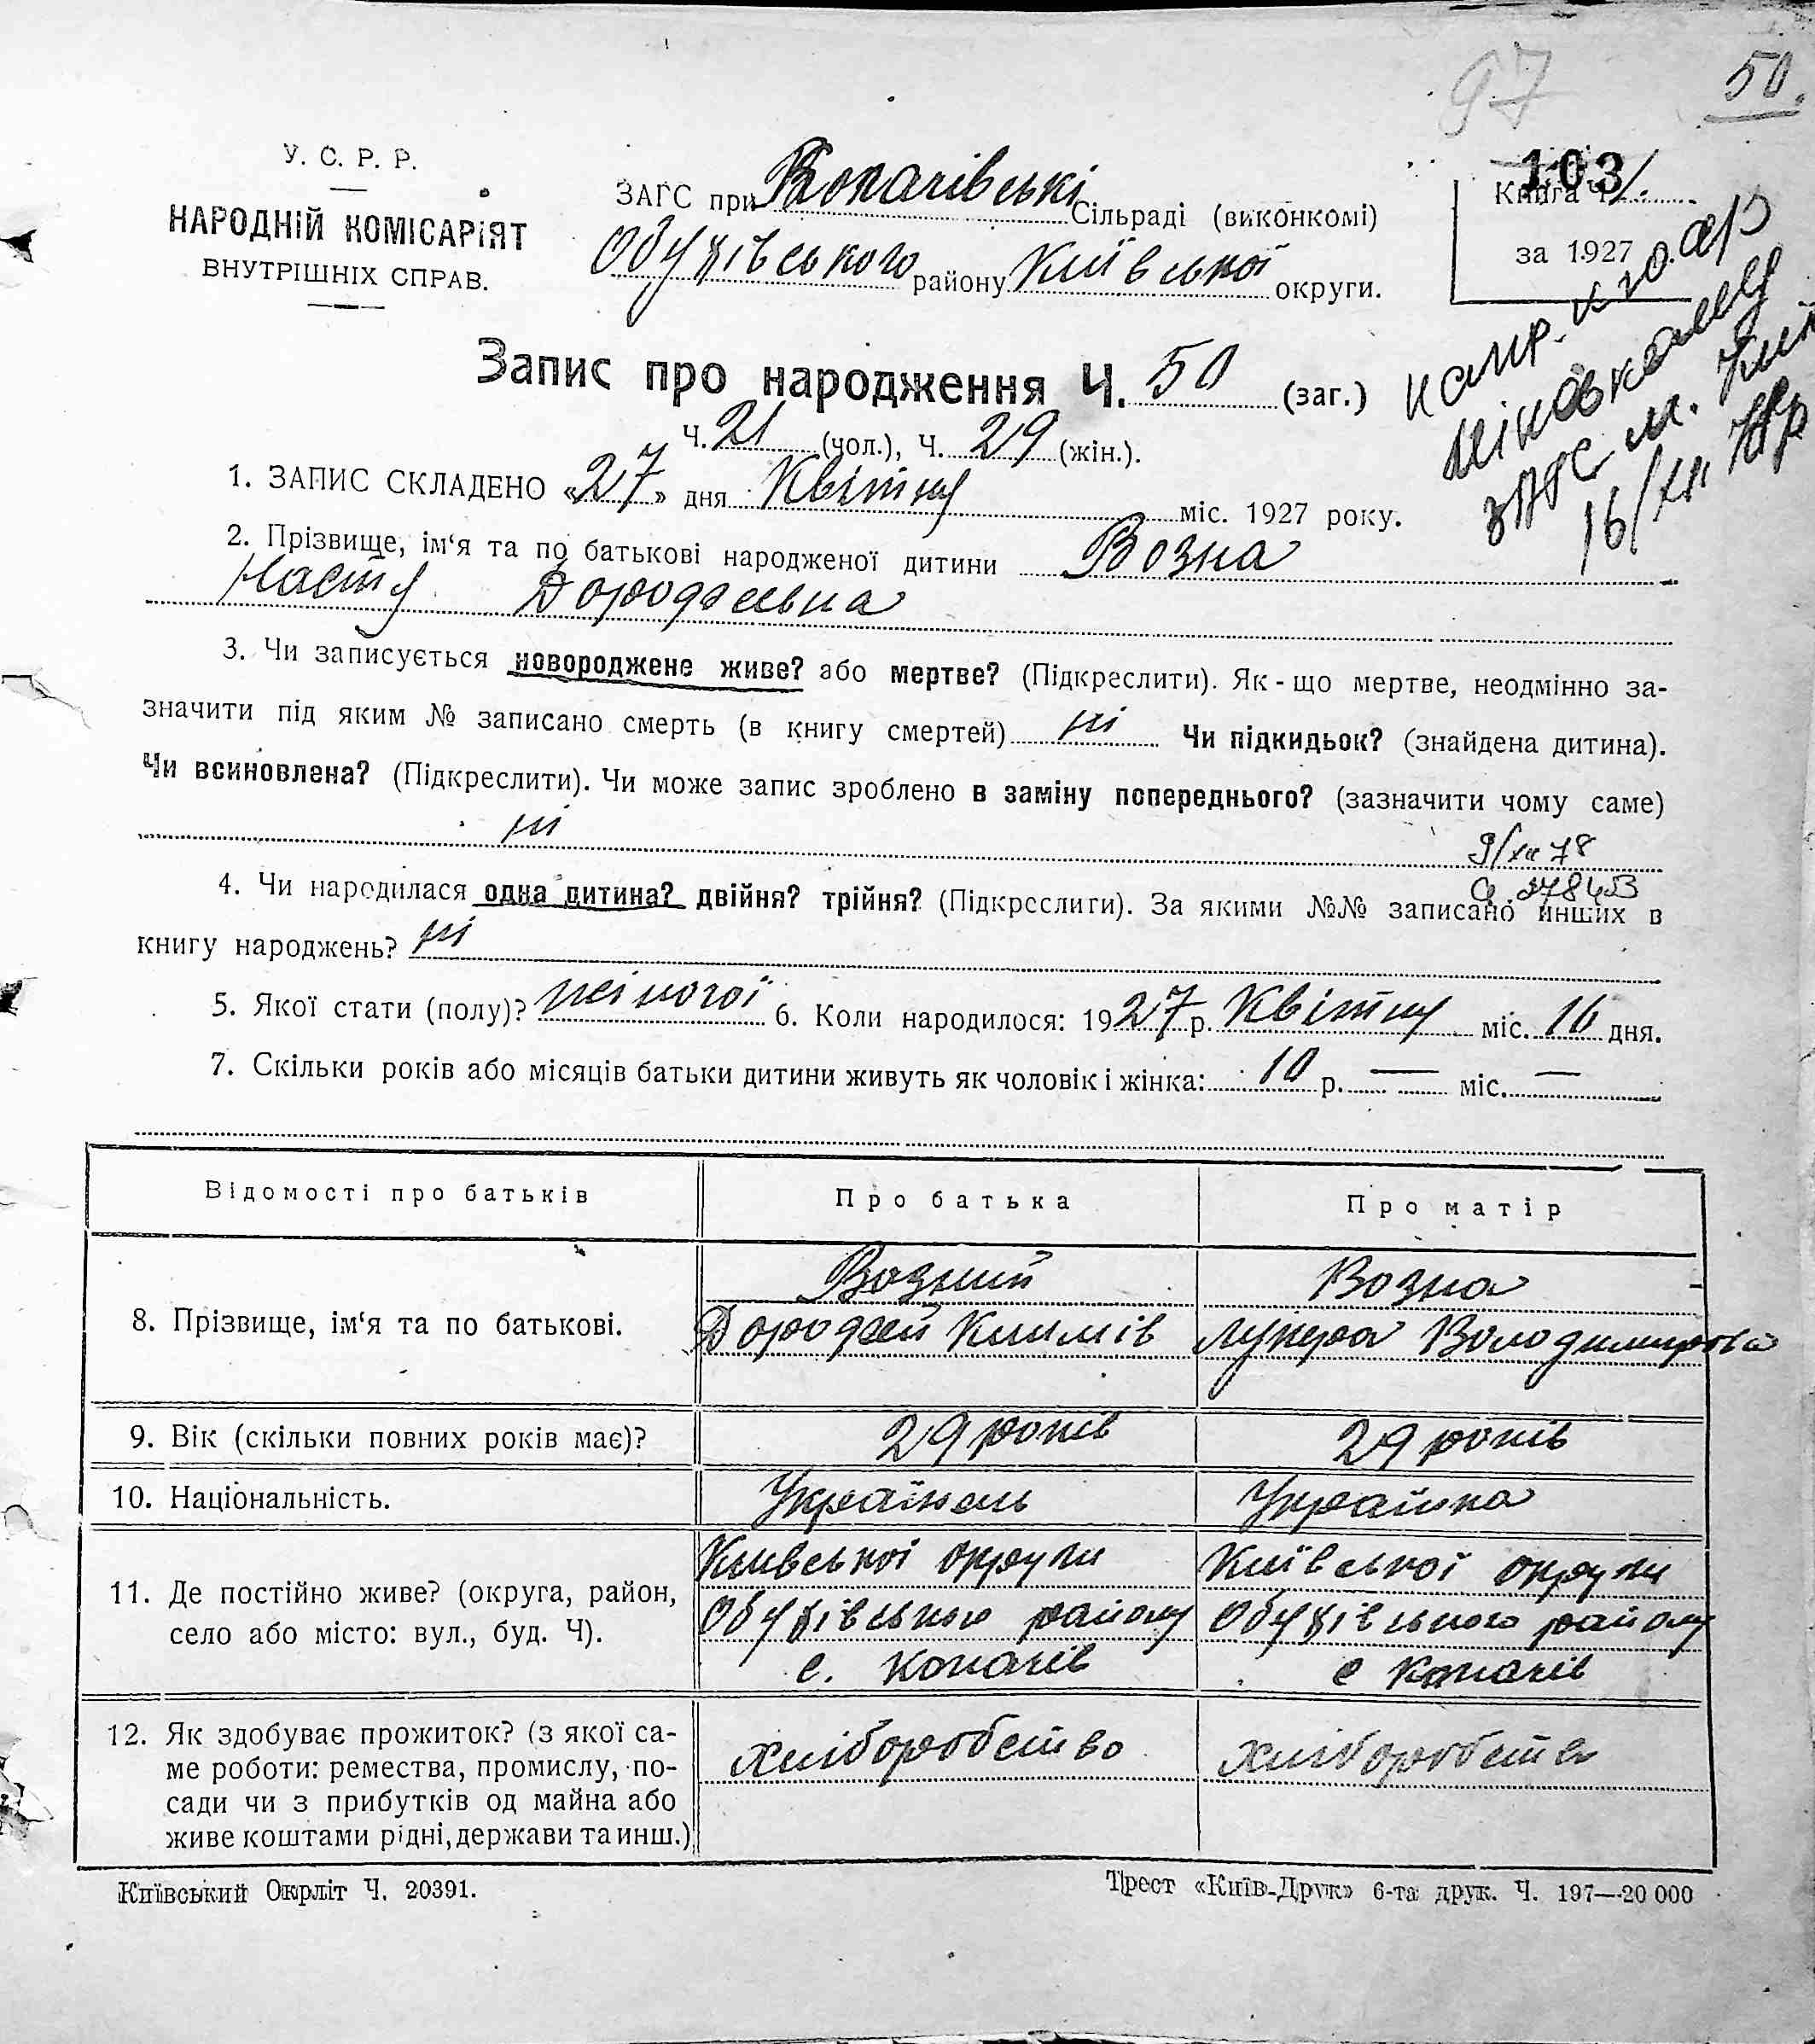 97
50.
У. С. Р. Р.
НАРОДНІЙ КОМІСАРІЯТ
ВНУТРІШНІХ СПРАВ.
ЗАГС при Копачівські Сільраді (виконкомі)
Обухівського району Київської округи.
103
Книга Ч. 1.
за 1927
Запис про народження Ч. 50 (заг.)
Ч. 21 (чол.), Ч. 29 (жін.).
м.
16/XII
1. ЗАПИС СКЛАДЕНО «27» дня Квітня міс. 1927 року.
2. Прізвище, ім‘я та по батькові народженої дитини Возна
Настя Дорофеевна
3. Чи записується новороджене живе? або мертве? (Підкреслити). Як-що мертве, неодмінно за-
значити під яким № записано смерть (в книгу смертей) ні Чи підкидьок? (знайдена дитина).
Чи всиновлена? (Підкреслити). Чи може запис зроблено в заміну попереднього? (зазначити чому саме)
ні
9/XII 78
4. Чи народилася одна дитина? двійня? трійня? (Підкреслити). За якими №№ записано инших в
книгу народжень? ні
5. Якої стати (полу)? жіночої 6. Коли народилося: 1927 р. Квітня міс. 16 дня.
7. Скільки років або місяців батьки дитини живуть як чоловік і жінка: 10 р. — міс. —
Відомості про батьків Про батька Про матір
8. Прізвище, ім‘я та по батькові.
Возний
Дорофей Климів
Возна
Лукера Володимирова
9. Вік (скільки повних років має)? 29 років 29 років
10. Національність. Українець Украінка
11. Де постійно живе? (округа, район,
село або місто: вул., буд. Ч).
Киівської округи
Обухівського району
с. Копачів
Київської округи
Обухівського району
с Копачів
12. Як здобуває прожиток? (з якої са-
ме роботи: ремества, промислу, по-
сади чи з прибутків од майна або
живе коштами рідні, держави та инш.)
хліборобство
хліборобство
Київський Окрліт Ч. 20391.
Трест «Київ-Друк» 6-та друк. Ч. 197—20 000